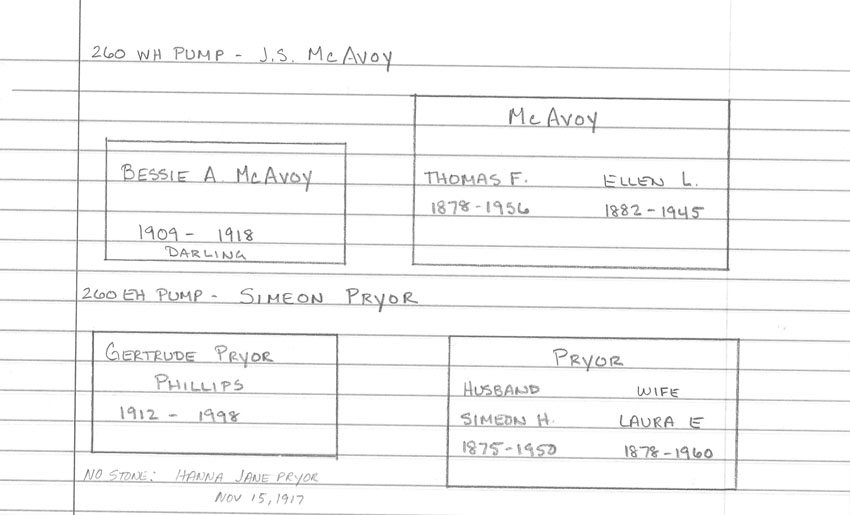 260 WH PUMP - J.S. McAVOY
McAVOY
BESSIE A. McAVOY
1909 - 1918
DARLING
THOMAS F. ELLEN L.
1878-1956 1882-1945
260 EH PUMP - SIMEON PRYOR
GERTRUDE PRYOR
PHILLIPS
1912 - 1998
PRYOR
HUSBAND WIFE
SIMEON H. LAURA E
1875-1950 1878-1960
NO STONE: HANNA JANE PRYOR
NOV 15, 1917